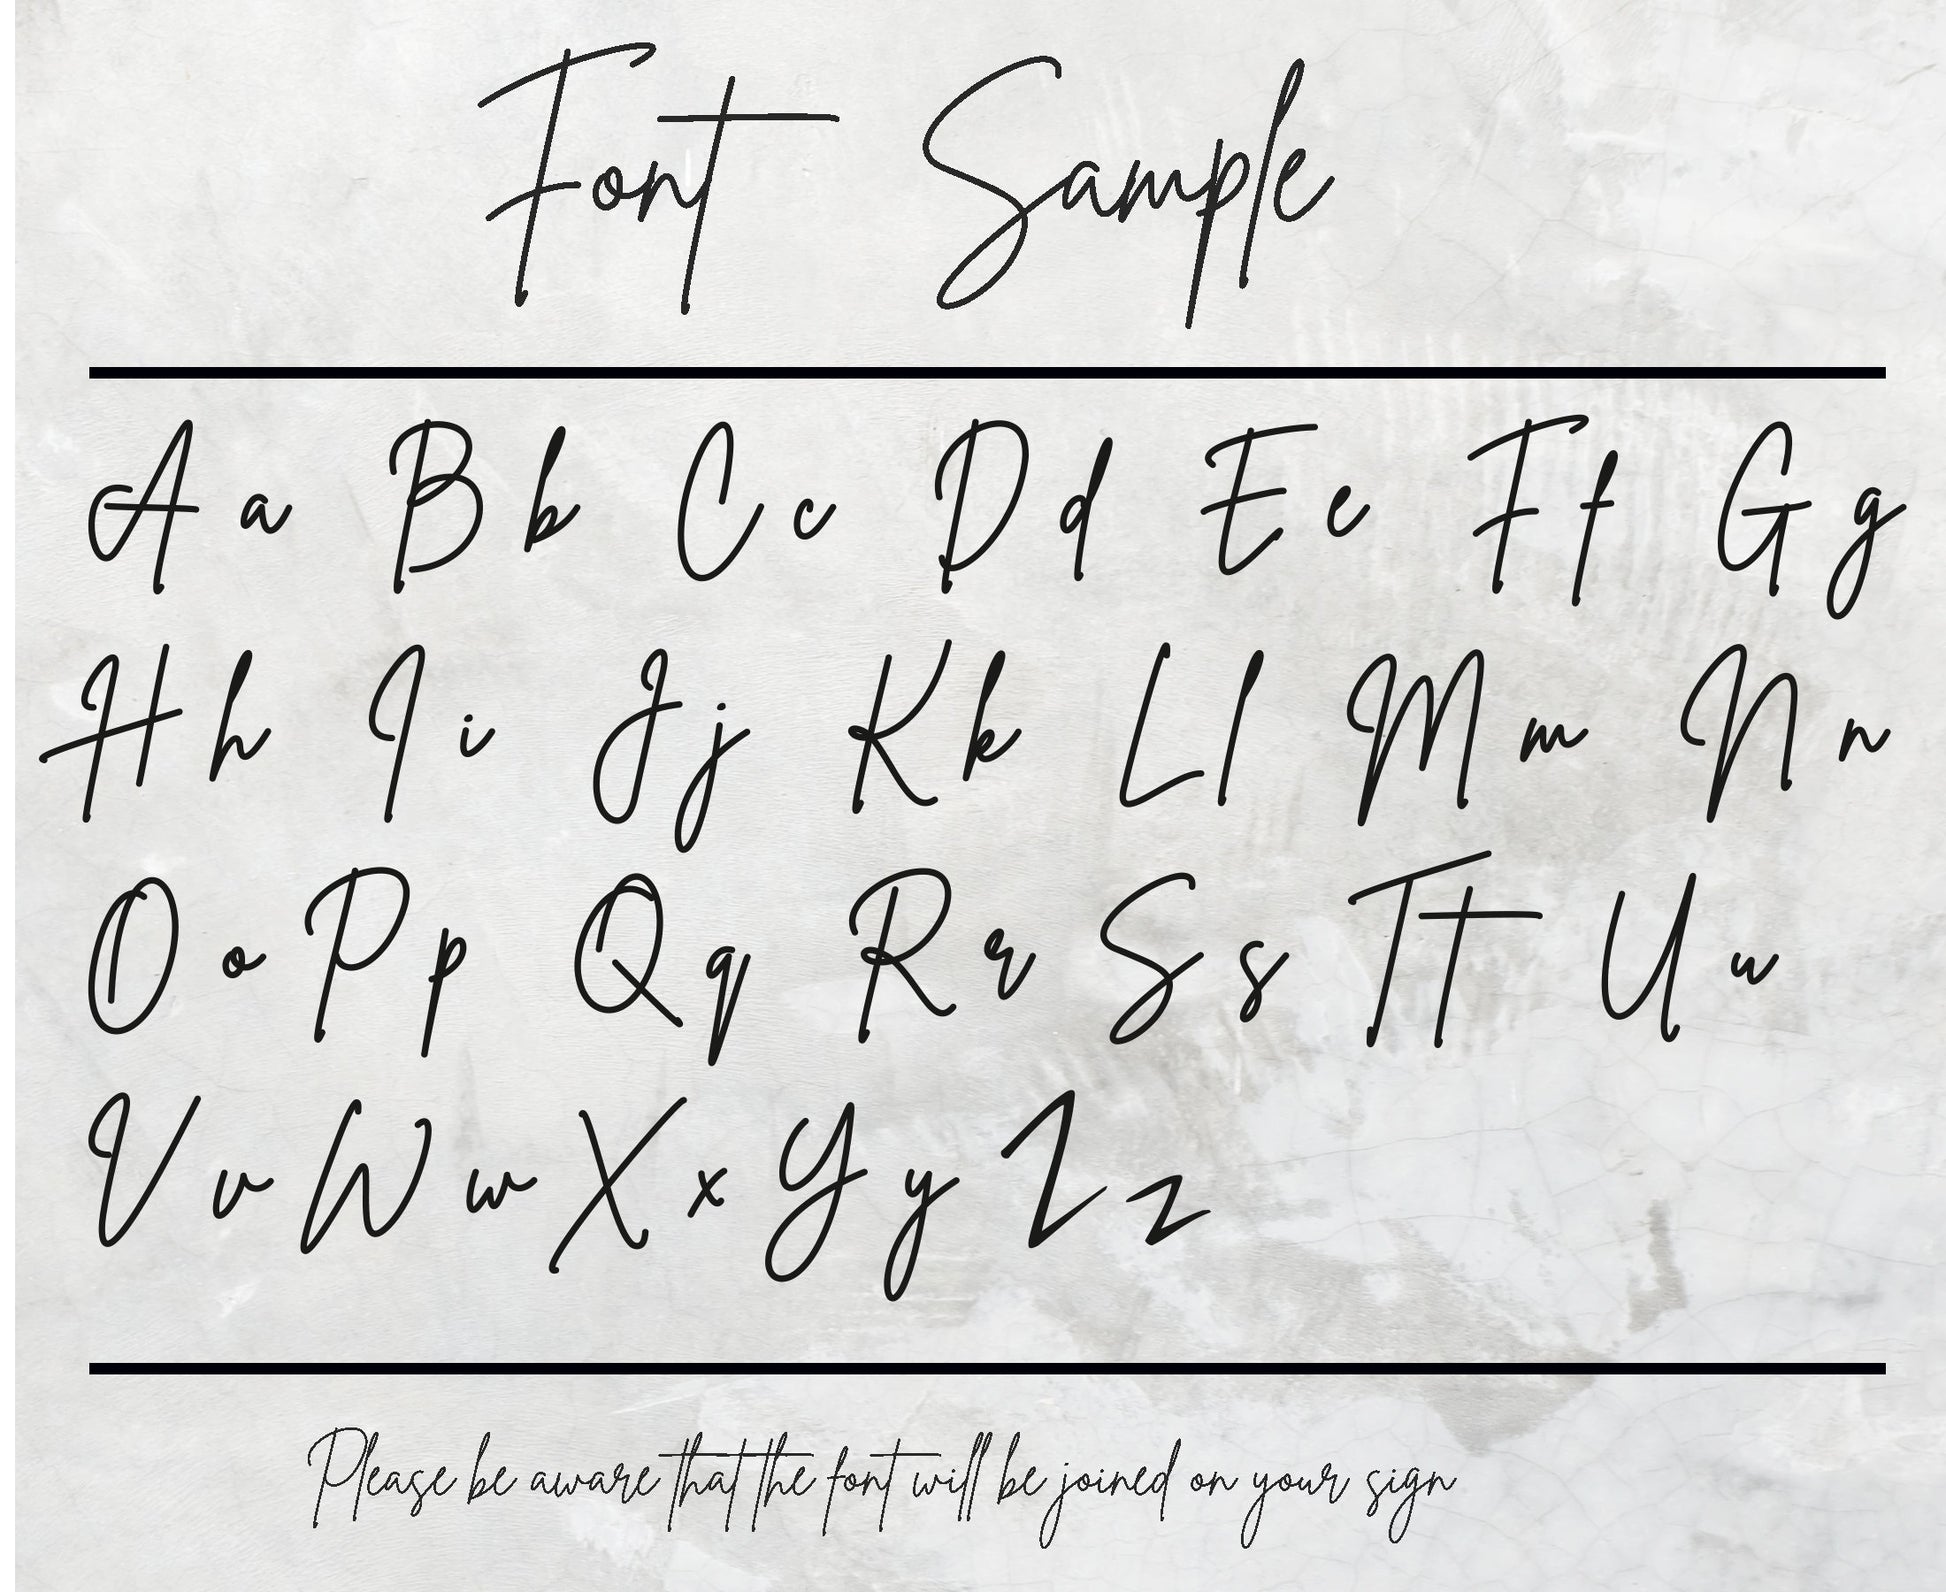 Font Sample
A a B b C c D d E e F f G g
H h I i J j K k L l M m N n
O o P p Q q R r S s T t U u
V v W w X x Y y Z z
Please be aware that the font will be joined on your sign